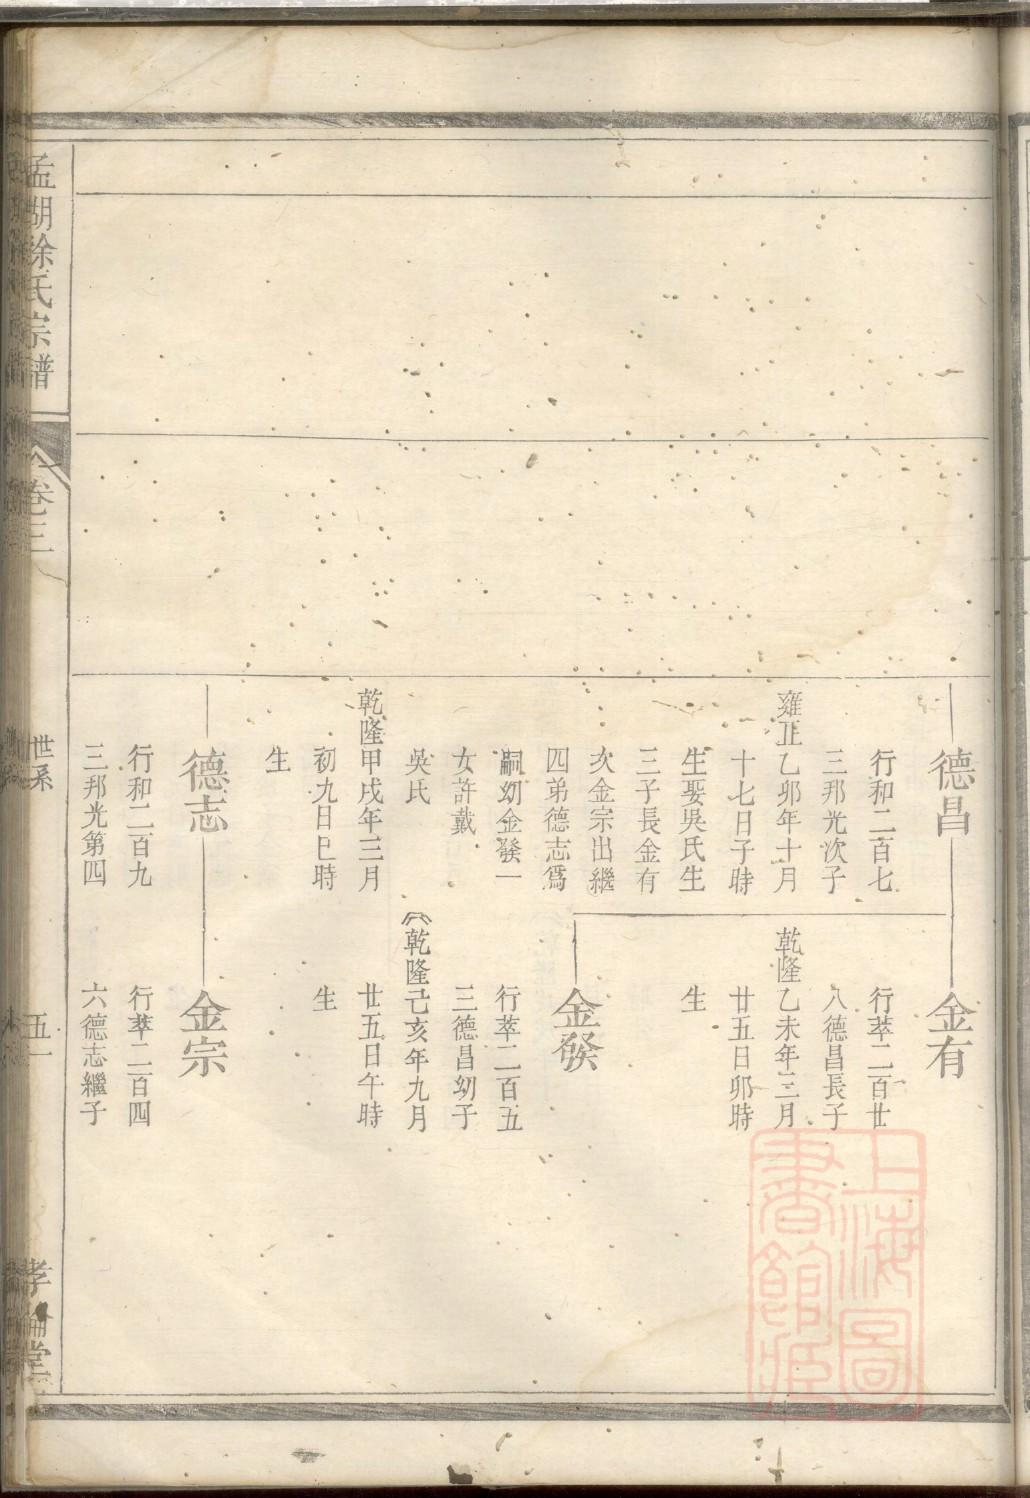 德昌
行和二百七
三邦光次子
雍正乙卯年十月
十七日子時
生娶吳氏生
三子長金有
次金宗出繼
四弟德志爲
嗣幼金發一
女許戴
吳氏
乾隆甲戌年三月
初九日巳時
生
德志
行和二百九
三邦光第四
金有
行萃二百廿
八德昌長子
乾隆乙未年三月
廿五日卯時
生
金發
行萃二百五
三德昌幼子
乾隆己亥年九月
廿五日午時
生
金宗
行萃二百四
六德志繼子
孟湖徐氏宗譜
卷三
世系
五一
孝倫堂
上海圖
書館藏